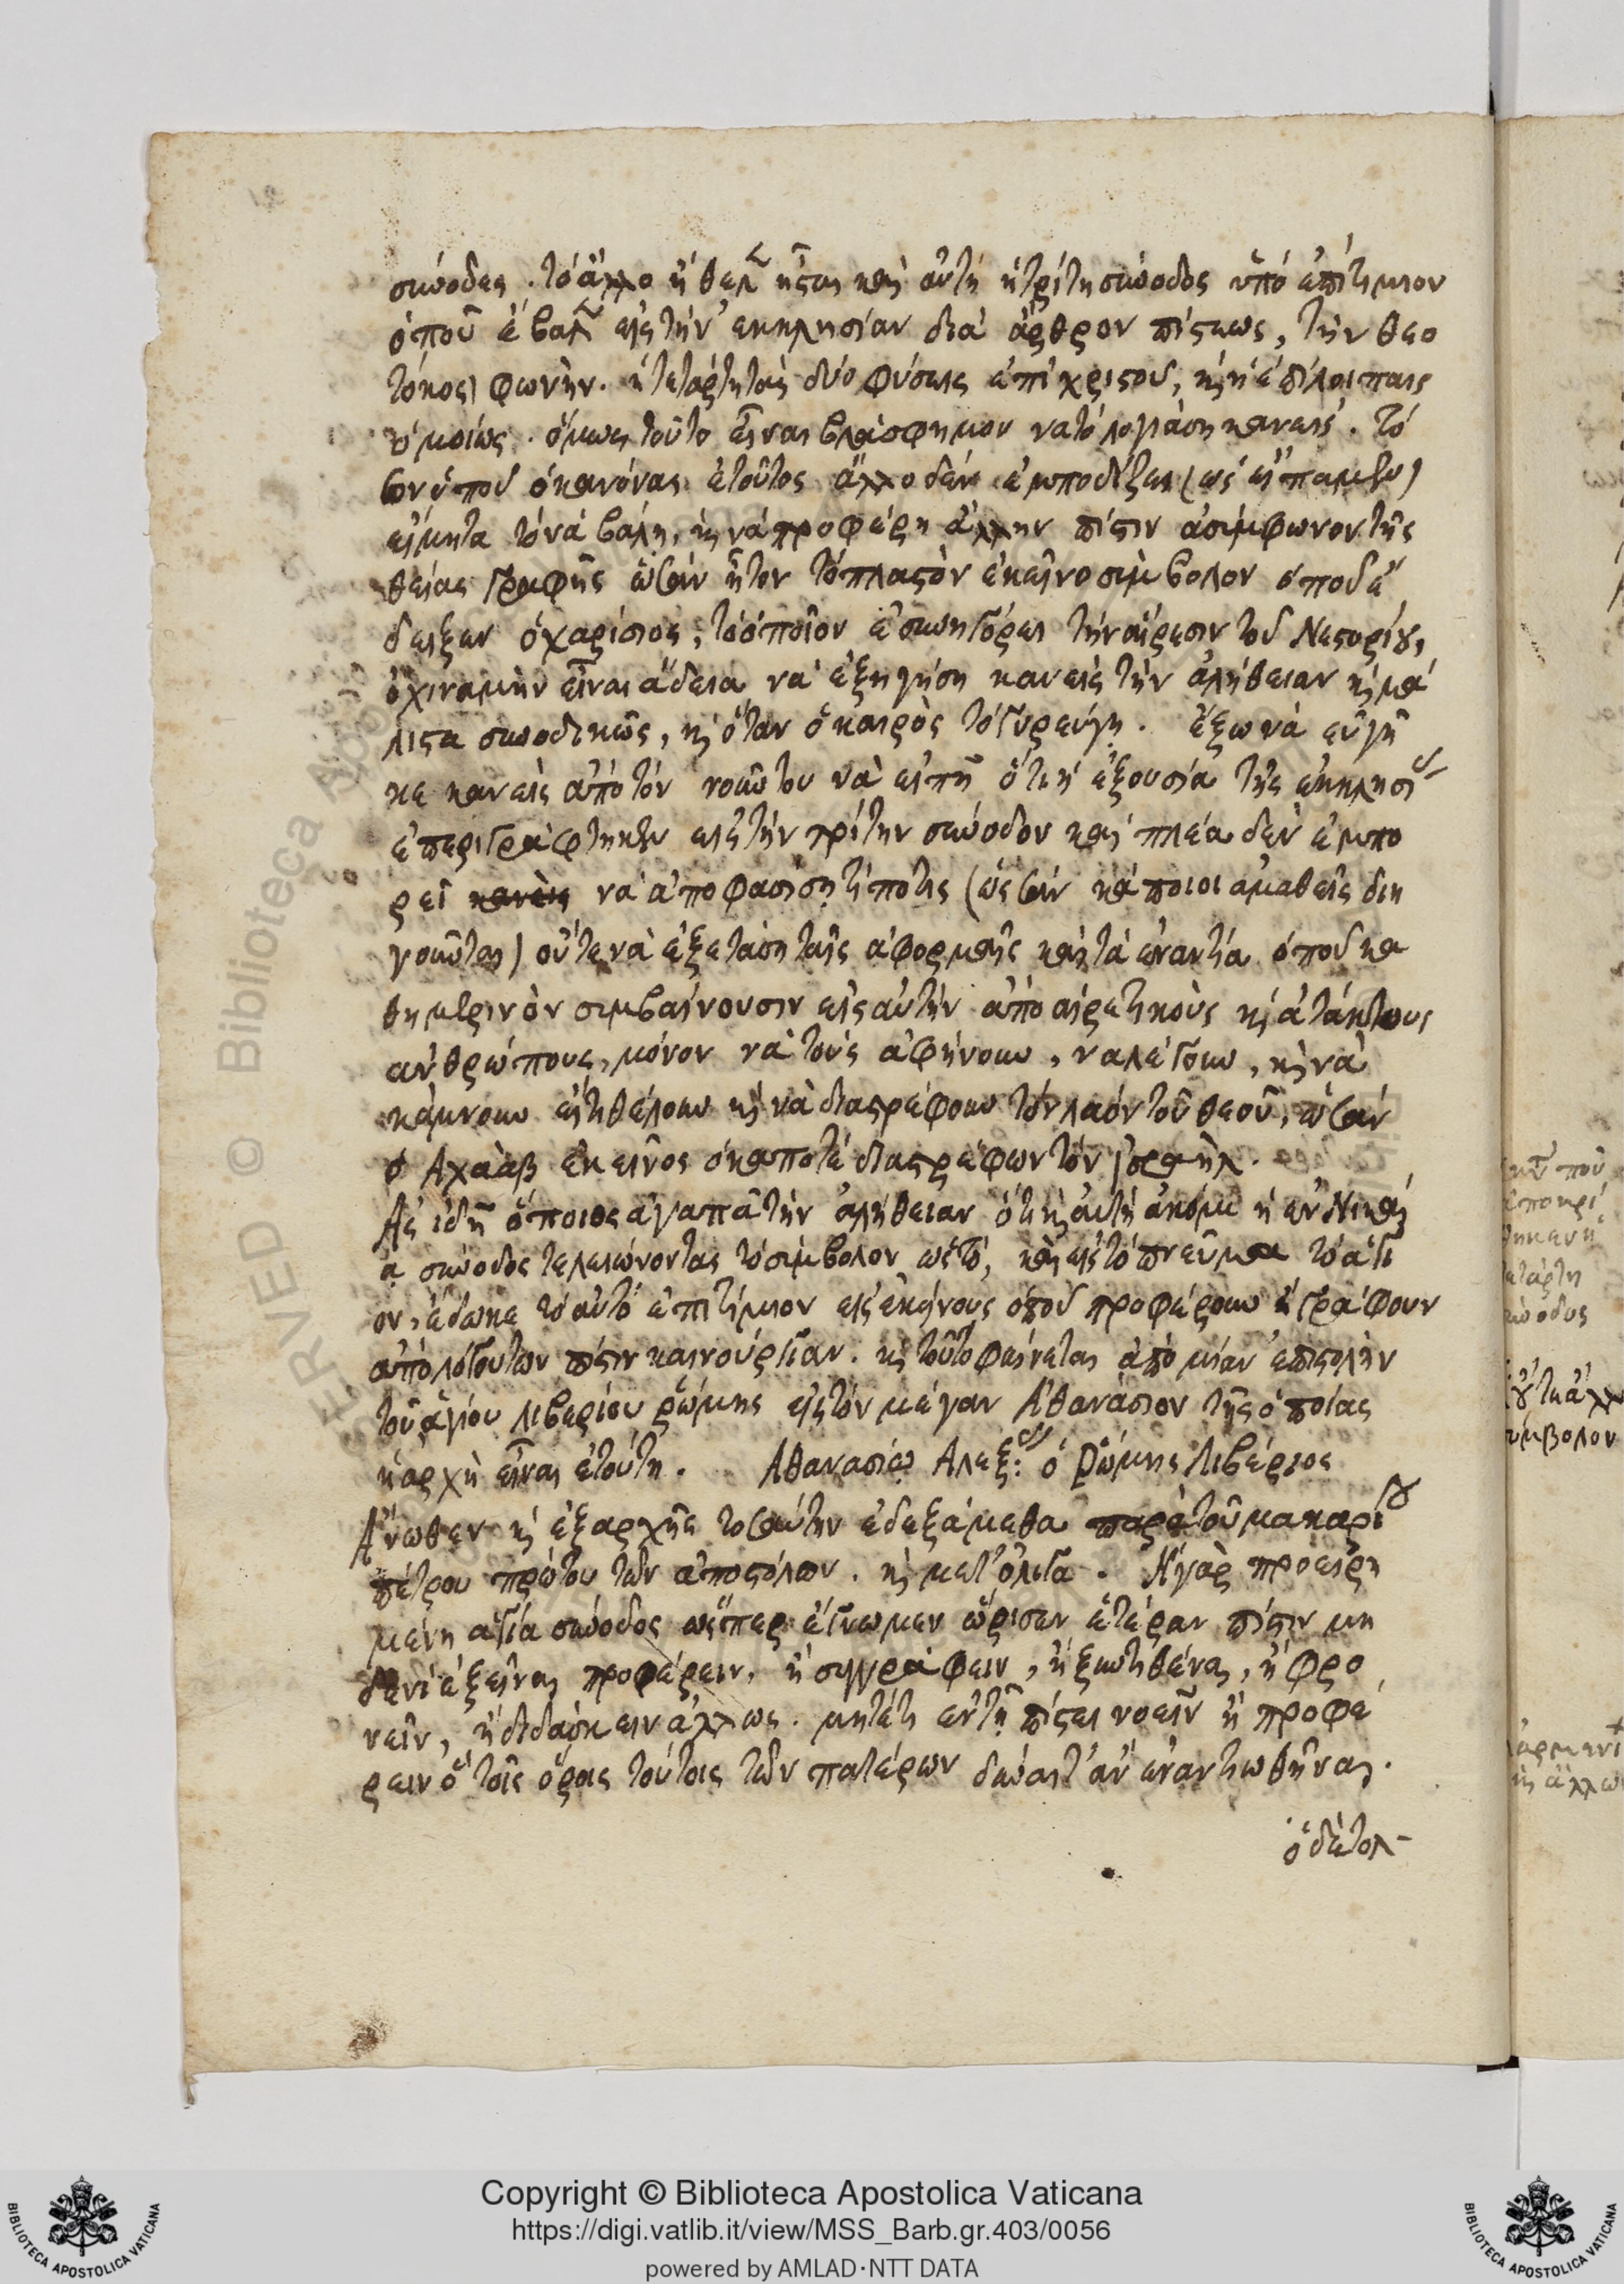 σιωόδες. τὸ ἄλλο ἤθελεν ἦσται καὶ αὐτὴ ἡ τρίτη σύνοδος ὑπὸ ἐπιτίμιον
ὁποῦ ἔβαλεν εἰς τὴν ἐκκλησίαν διὰ ἄρθρον πίστεως, τὴν θεο
τόκος) φωνὴν. ἡ τετάρτη ταὶς δύο φύσεις ἐπὶ χριστοῦ, καὶ ἡ ἐπίλοιπαις
ὁμοίως. ὅμως τοῦτο εἶναι βλάσφημον νὰ τὸ λογιάση κανείς. τὸ
ὁποῦ ὁ κανόνας ἐτοῦτος ἄλλο δὲν ἐμποδίζει (ὡς εἴπαμεν)
εἰμὴ τα τὸ νὰ βάλη, καὶ νὰ προφέρη ἄλλην πίστιν ἀσύμφωνον τῆς
θείας γραφῆς ὡσὰν ἦτον τὸ πλαστὸν ἐκεῖνο σύμβολον ὁποδέ
δειξεν ὁ χαρίσιος, τὸ ὁποῖον ἐσυνηγόρει τὴν αἵρεσιν τοῦ Νεστορίου,
ὄχι νὰ μὴν εἶναι ἄδεια νὰ ἐξηγήση κανεὶς τὴν ἀλήθειαν καὶ μά
λιστα συνοδικῶς, καὶ ὅταν ὁ καιρὸς τὸ γυρεύγη. ἔξω νὰ εὐγῆ
κε κανεὶς ἀπὸ τὸν νοῦν του νὰ εἰπῆ ὅτι ἡ ἐξουσία τῆς ἐκκλησίας
ἐπεριγράφτηκεν εἰς τὴν τρίτην σύνοδον καὶ πλέα δὲν ἐμπο
ρεῖ κανεὶς νὰ ἀποφασίση τίποτις (ὡς ὰν κάποιοι ἀμαθεῖς διη
γοῦνται) οὔτε νὰ ἐξετάση ταῖς ἀφορμαῖς καὶ τὰ ἐναντία ὁποῦ κα
θημερινὸν συμβαίνουσιν εἰς αὐτὴν ἀπὸ αἱρετικοὺς καὶ ἀτάκτους
ἀνθρώπους, μόνον νὰ τοὺς ἀφήνουν, νὰ λέγουν, καὶ νὰ
κάμνουν εἴτι θέλουν καὶ νὰ διαστρέφουν τὸν λαὸν τοῦ θεοῦ, ὡσὰν
ὁ Ἀχαὰβ ἐκεῖνος ὁ καποτὲ διαστρέφων τὸν Ἰσραήλ.
Ἂς ἰδῆ ὅποιος ἀγαπᾶ τὴν ἀλήθειαν ὅτι καὶ αὐτὴ ἀκόμι ἡ ἐν Νικαί
ᾳ σύνοδος τελειώνοντας τὸ σύμβολον ὡς τὸ, καὶ εἰς τὸ πνεῦμα τὸ ἅγι
ον, ἔδωκε τὸ αὐτὸ ἐπιτίμιον εἰς ἐκείνους ὁποῦ προφέρουν ἢ γράφουν
ἀπὸ λόγου των πίστιν καινούργιαν. καὶ τοῦτο φαίνεται ἀπὸ μίαν ἐπιστολὴν
τοῦ ἁγίου Λιβερίου ῥώμης εἰς τὸν μέγαν Ἀθανάσιον τῆς ὁποίας
ἡ ἀρχὴ εἶναι ἐτούτη. Ἀθανασίῳ Ἀλεξ: ὁ Ῥώμης Λιβέριος
Ἄνωθεν καὶ ἐξαρχῆς τοσαύτην ἐδεξάμεθα παρὰ τοῦ μακαρίου
πέτρου πρώτου τῶν ἀποστόλων. καὶ μετ' ὀλίγα. Ἡ γὰρ προειρη
μένη ἁγία σύνοδος ὥσπερ ἔγνωμεν ὥρισεν ἑτέραν πίστιν μη
δενὶ ἐξεῖναι προφέρειν, ἢ συγγράφειν, ἢ ξυντιθέναι, ἢ φρο
νεῖν, ἢ διδάσκειν ἄλλως. μήτέ τι ἐν τῇ πίστει νοεῖν ἢ προφέ
ρειν ὃ τοῖς ὅροις τούτοις τῶν πατέρων δύναιτ' ἂν ἐναντιωθῆναι.
ὁ δὲ τολ-
Copyright © Biblioteca Apostolica Vaticana
https://digi.vatlib.it/view/MSS_Barb.gr.403/0056
powered by AMLAD·NTT DATA